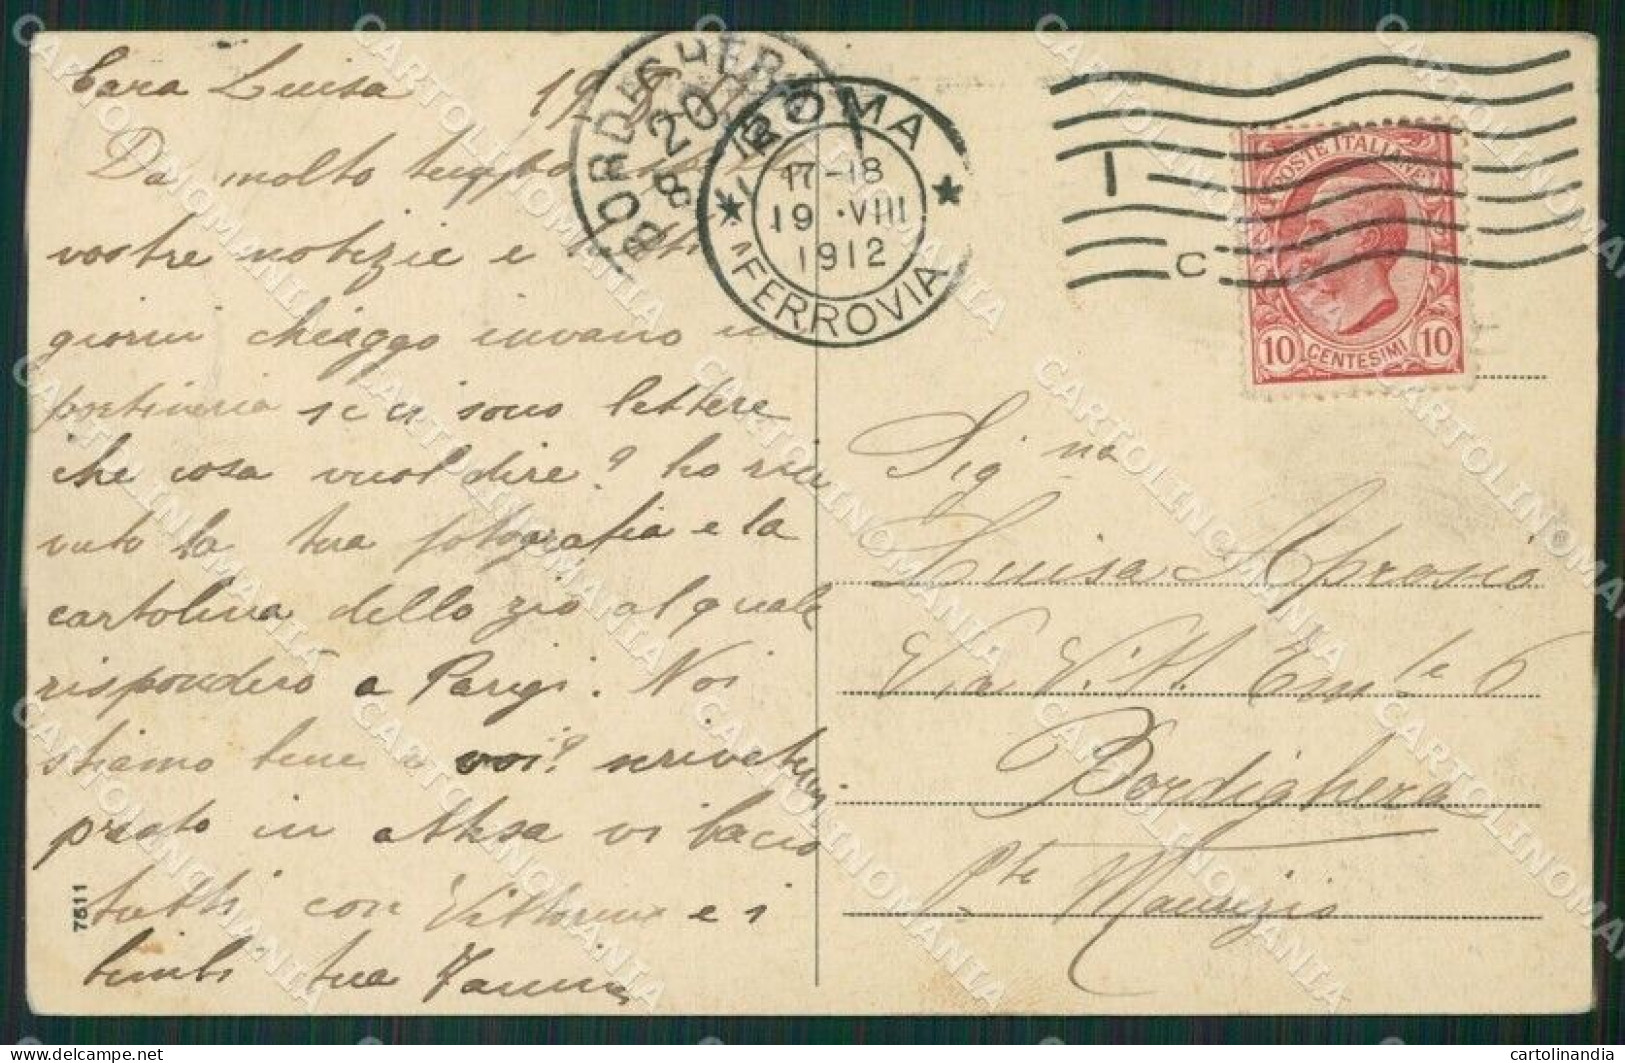 Cara Luisa 19
Da molto tempo
vostre notizie e tutti
giorni chieggo invano in
portineria se ci sono lettere
che cosa vuol dire? ho rice
vuto la tua fotografia e la
cartolina dello zio al quale
risponderò a Parigi. Noi
stiamo bene e voi? scrivetemi
presto in attesa vi bacio
tutti con Vittorino e i
bimbi tua Fanny
7511
BORDIGHERA
20 8 12
ROMA
17-18
19 ·VIII
1912
FERROVIA
I
C
POSTE ITALIANE
10 CENTESIMI 10
Signa
Luisa Aprosio
Via Vitt. Emle 6
Bordighera
Pto Maurizio
CARTOLINOMANIA
www.delcampe.net
cartolinandia